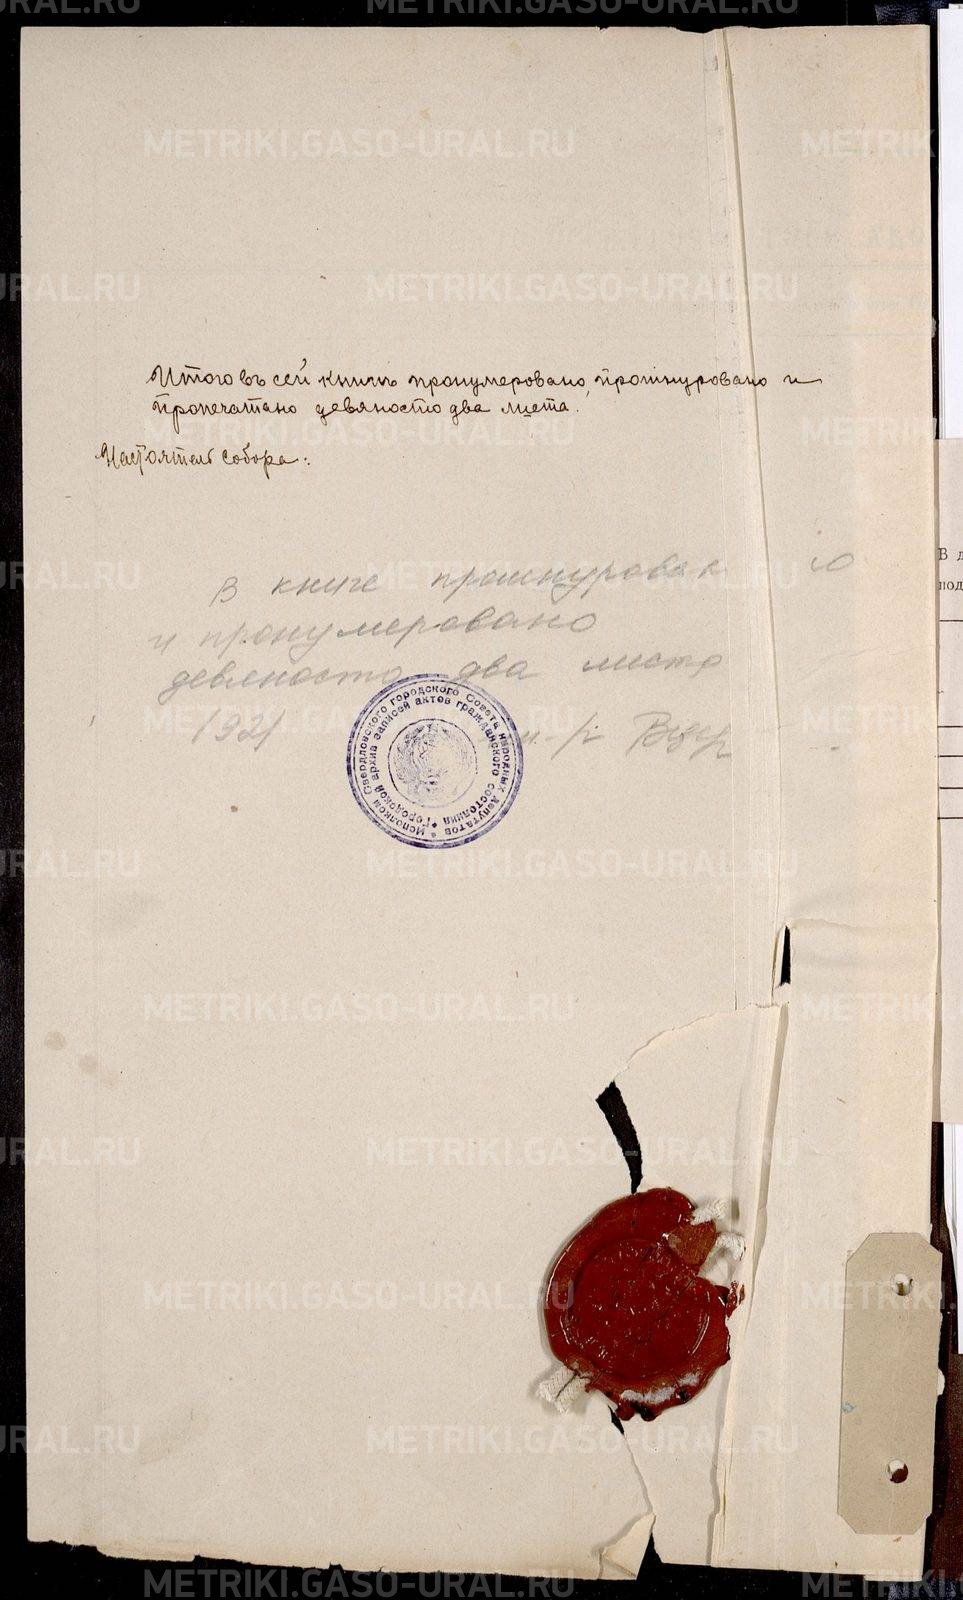 Итого въ сей книгѣ пронумеровано, прошнуровано и
пропечатано девяносто два листа.
Настоятель собора:
В книге прошнурован о
и пронумеровано
девяносто два листа
192
Исполком Свердловского городского Совета народных депутатов
Городской архив записей актов гражданского состояния
В д
под
METRIKI.GASO-URAL.RU